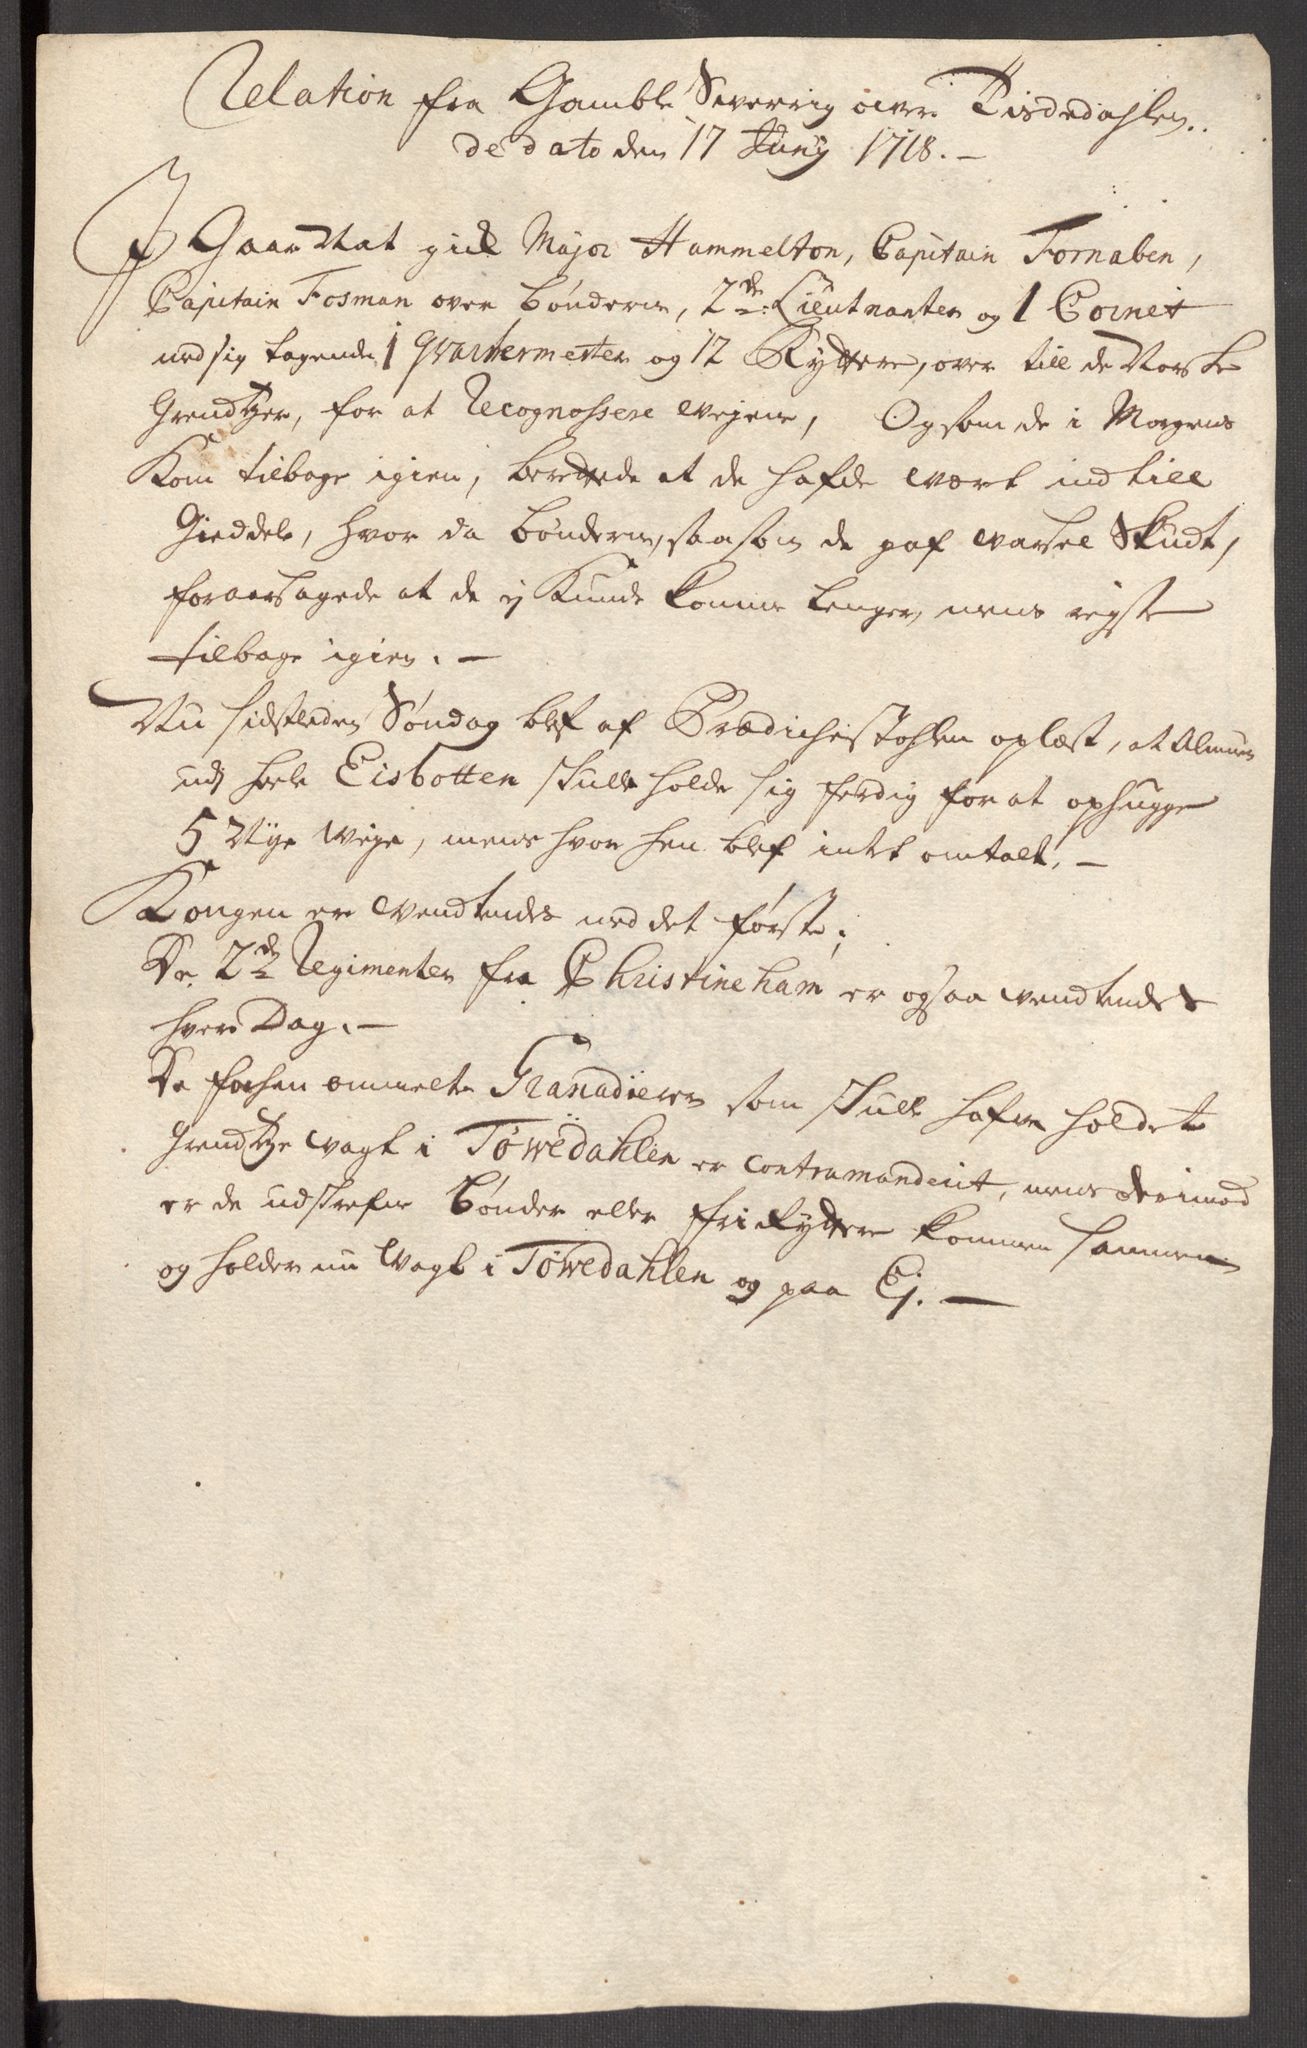 Relation fra Gamble Sverrig over Tisdedahlen..
de dato den 17 Junij 1718. –
I Gaar Nat gick Major Hammelton, Capitain Tornaben,
Capitain Fosman over bønderne, 2de: Lieutnanter og 1 Cornet
med sig tagende 1 Qvartermester og 12 Ryttere, over till de Norske
Grendtzer, for at Recognossere Vejene, Og som de i Morgens
kom tilbage igien, berettede at de hafde vært ind till
Gieddelø, hvor da bønderne, saasom de gaf varsel Skudt,
foraarsagede at de ej kunde komme lenger, mens rejste
tilbage igien. –
Nu sidstleden Søndag blef af Prædichestohlen oplæst, at Almuen
udj heele Eisbotten skulle holde sig ferdig for at ophugge
5 Nÿe Veje, mens hvor hen blef intet omtalt. –
Kongen er Vendtendes med det første;
De 2de Regimenter fra Christineham er ogsaa vendtendes
hver Dag. –
De forhen ommelte Granadierer som skulle hafve holdet
Grendtze Vagt i Tøwedahlen er contramanderit, mens derimod
er de udskrefne bønder eller fri Ryttere kommen sammen
og holder nu Vagt i Tøwedahlen og paa Ej. –